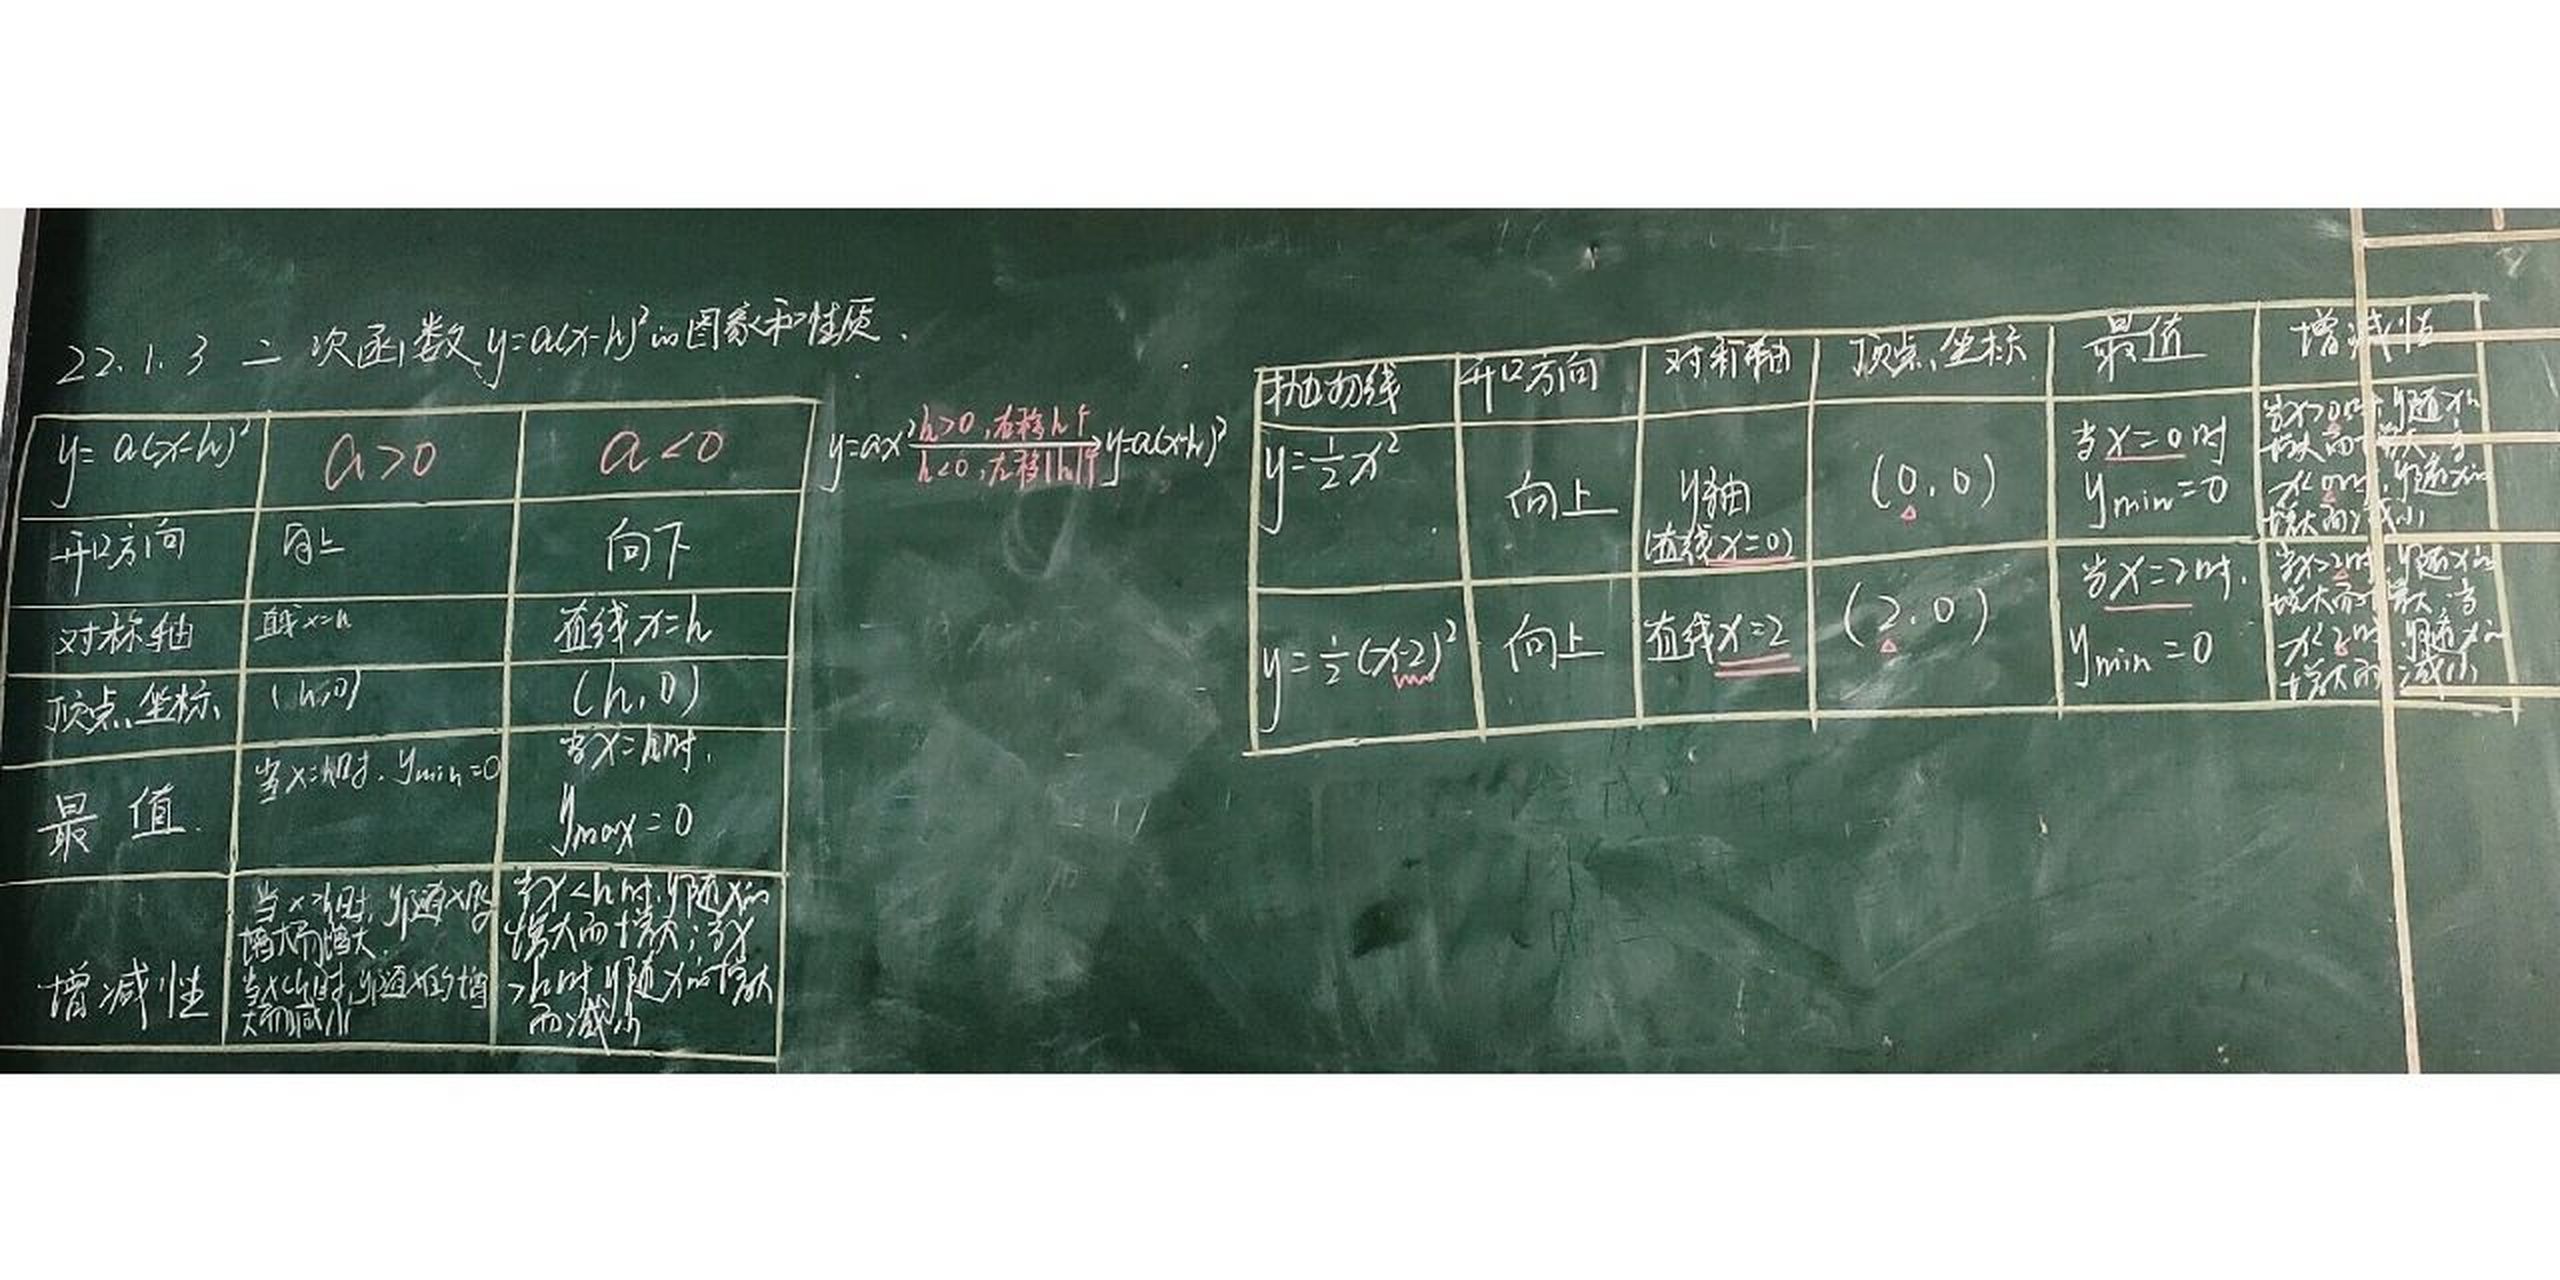 22.1.3 二次函数y=a(x-h)²的图象和性质.
y=a(x-h)² a>0 a<0
开口方向 向上 向下
对称轴 直线x=h 直线x=h
顶点坐标 (h,0) (h,0)
最值. 当x=h时. ymin=0 当x=h时.
ymax=0
增减性
当x>h时, y随x的
增大而增大.
当x<h时,y随x的增
大而减小
当x<h时,y随x的
增大而增大;当x
>h时,y随x的增大
而减小
h>0,右移h个
y=ax² y=a(x-h)²
h<0,左移|h|个
抛物线 开口方向 对称轴 顶点坐标 最值 增减性
y=½x² 向上 y轴
(直线x=0) (0,0) 当x=0时
ymin=0
当x>0时,y随x的
增大而增大;当
x<0时,y随x的
增大而减小
y=½(x-2)² 向上 直线x=2 (2,0) 当x=2时.
ymin=0
当x>2时,y随x的
增大而增大;当
x<2时,y随x的
增大而减小